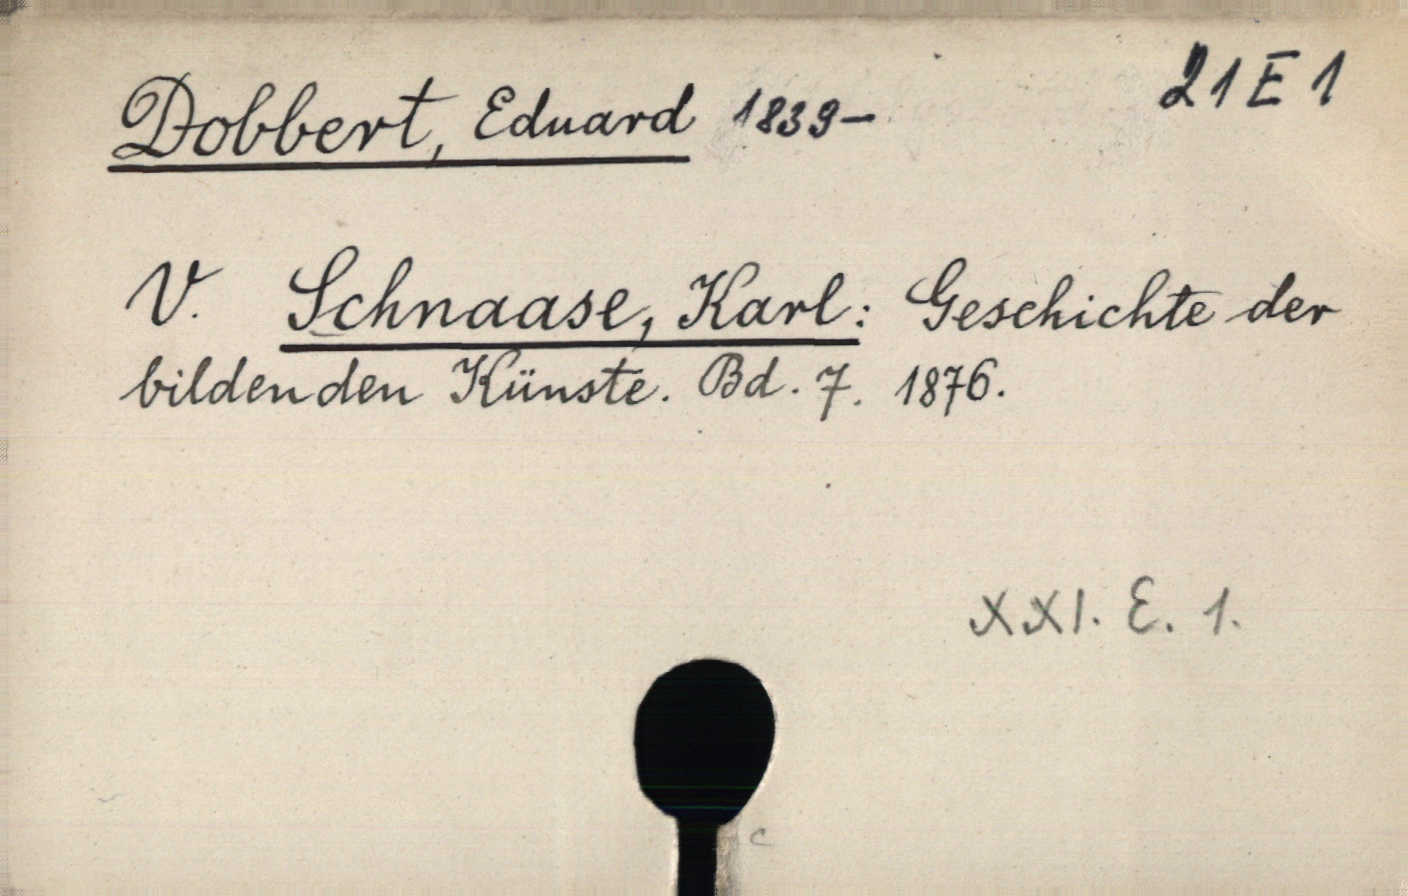 21 E 1
Dobbert, Eduard 1839-
V. Schnaase, Karl: Geschichte der
bildenden Künste. Bd. 7. 1876.
XXI. E. 1.
c